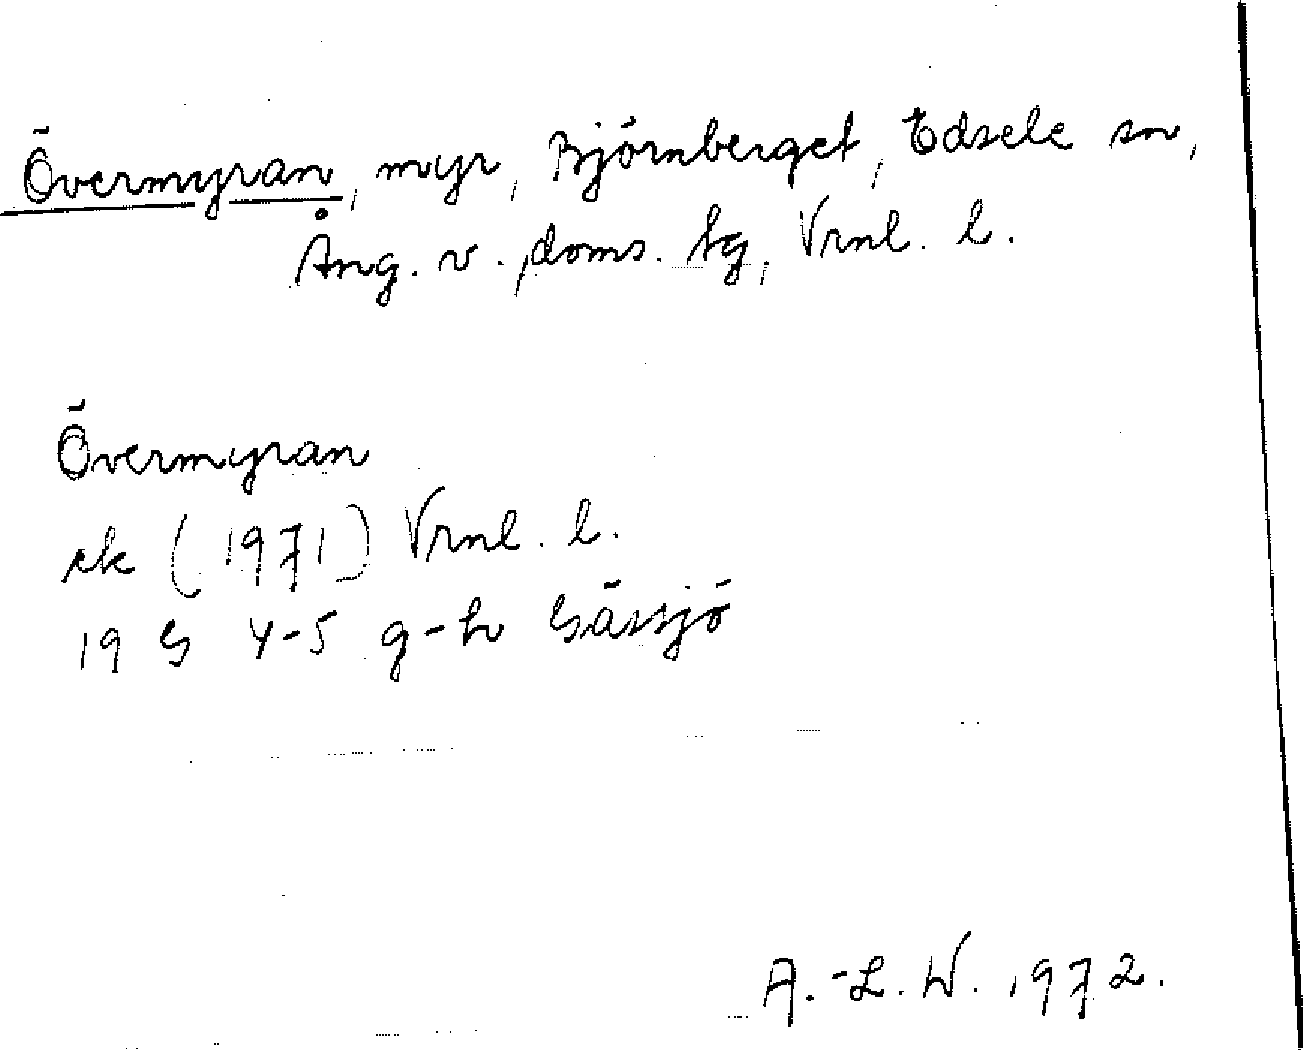 Övermyran, myr, Björnberget, Edsele sn,
Ång. v., doms. tg, Vrnl. l.
Övermyran
rk (1971) Vrnl. l.
19 G 4-5 g-h Gåssjö
A.-L. W. 1972.